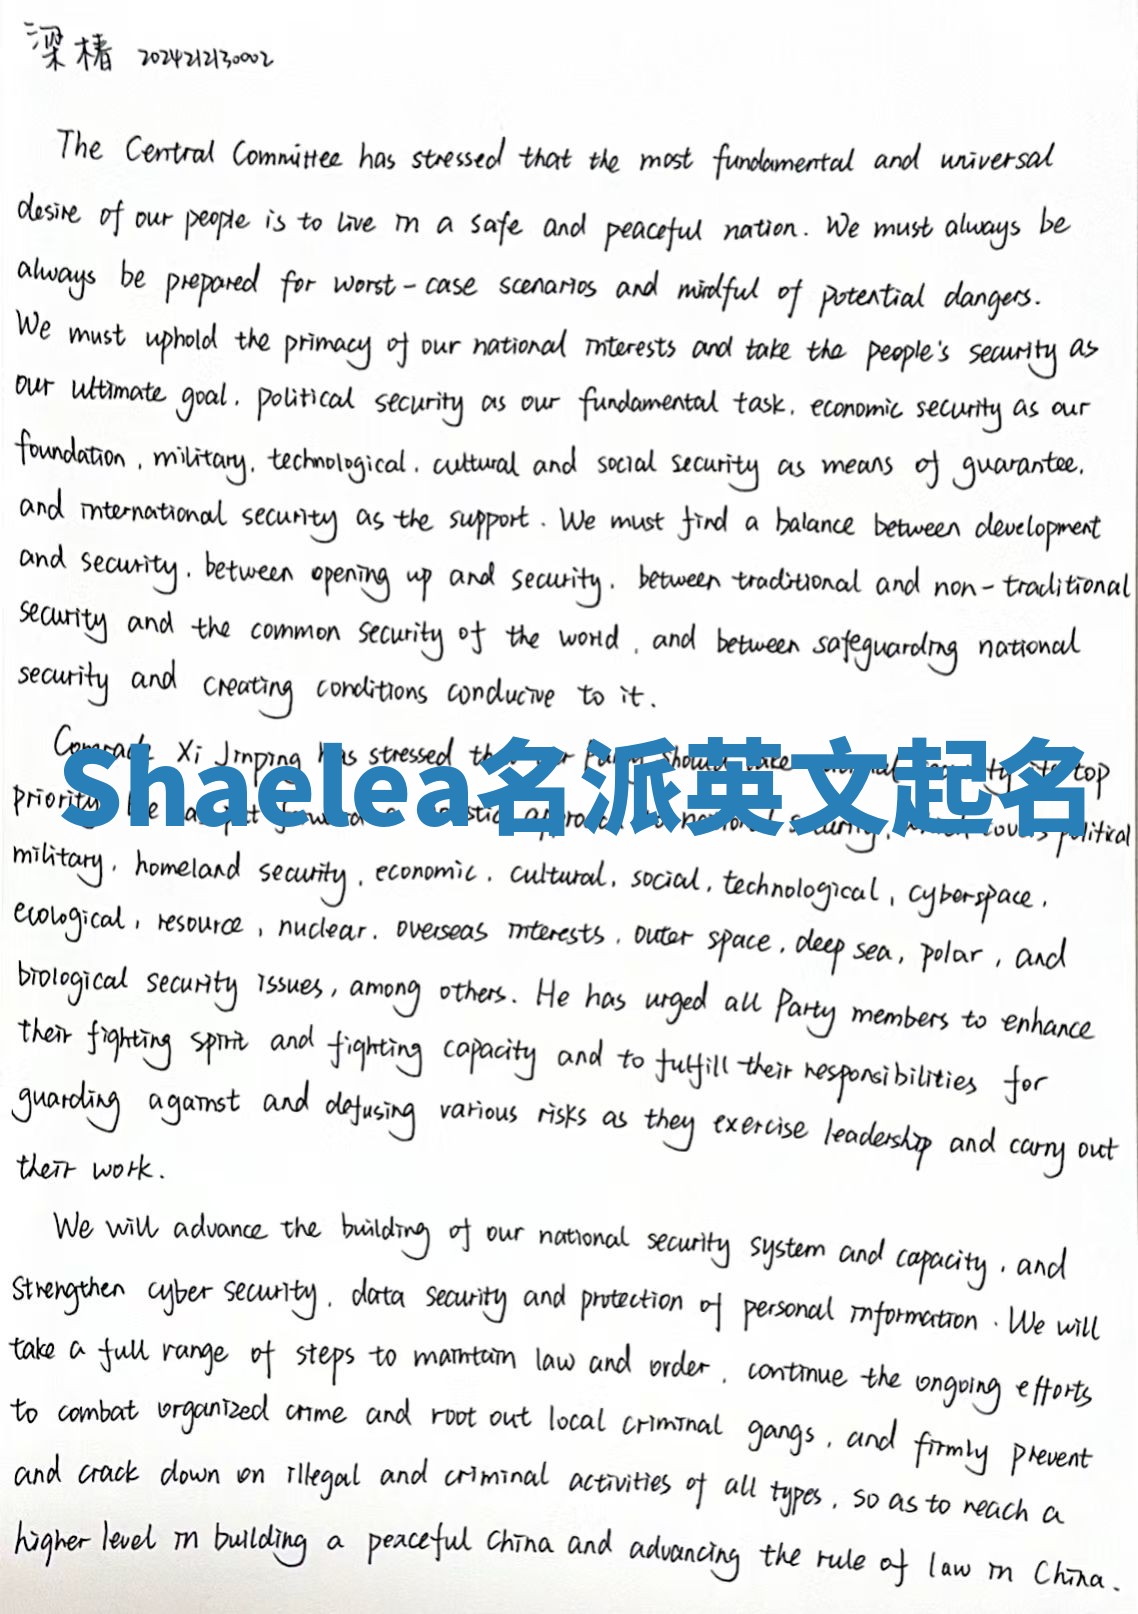 梁椿 20242121130002
The Central Committee has stressed that the most fundamental and universal
desire of our people is to live in a safe and peaceful nation. We must always be
always be prepared for worst-case scenarios and mindful of potential dangers.
We must uphold the primacy of our national interests and take the people's security as
our ultimate goal, political security as our fundamental task, economic security as our
foundation, military, technological, cultural and social security as means of guarantee,
and international security as the support. We must find a balance between development
and security, between opening up and security, between traditional and non-traditional
security and the common security of the world, and between safeguarding national
security and creating conditions conducive to it.
Comrade Xi Jinping has stressed should take top
Shaelea名派英文起名
priority. He has put security, which covers political
military, homeland security, economic, cultural, social, technological, cyberspace,
ecological, resource, nuclear, overseas interests, outer space, deep sea, polar, and
biological security issues, among others. He has urged all Party members to enhance
their fighting spirit and fighting capacity and to fulfill their responsibilities for
guarding against and defusing various risks as they exercise leadership and carry out
their work.
We will advance the building of our national security system and capacity, and
strengthen cyber security, data security and protection of personal information. We will
take a full range of steps to maintain law and order, continue the ongoing efforts
to combat organized crime and root out local criminal gangs, and firmly prevent
and crack down on illegal and criminal activities of all types, so as to reach a
higher level in building a peaceful China and advancing the rule of law in China.